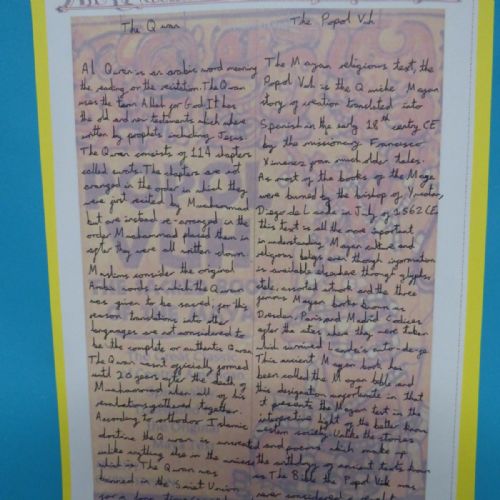 The Quran
Al Quran is an arabic word meaning
the reading or the recitation. The Quran
uses the term Allah for God. It has
the old and new testaments which where
written by prophets including Jesus.
The Quran consists of 114 chapters
called surats. The chapters are not
arranged in the order in which they
were first recited by Muuhammad
but are instead re-arranged in the
order Muuhammad placed them in
after they were all written down.
Muslims consider the original
Arabic words in which the Quran
was given to be sacred, for this
reason translations into other
languages are not considered to
be the complete or authentic Quran.
The Quran wasn't officially formed
until 20 years after the death of
Muuhammad when all of his
revelations gathered together.
According to orthodox Islamic
doctrine the Quran is uncreated
unlike anything else in the universe
which is. The Quran was
banned in the Soviet Union
for a long time
The Popol Vuh
The Mayan religious text, the
Popol Vuh is the Quiche Mayan
story of creation translated into
Spanish in the early 18th centry CE
by the missionary Francisco
Ximenez from much older tales.
As most of the books of the Maya
were burned by the bishop of Yucatan,
Diego de Landa in July of 1562 CE,
this text is all the more important
in understanding Mayan culture and
religious beliefs even though information
is available elsewhere through glyphs,
stele, assorted artwork and the three
famous Mayan books known as
Dresden, Paris and Madrid Codices
after the cities where they were taken
which survived Landa's auto-da-fe.
This ancient Mayan book has
been called the Mayan bible and
this designation unfortunate in that
it presents the Mayan text in the
interpretive light of the better known
western society. Unlike the stories
and poems which make up
the anthology of ancient texts known
as The Bible the Popol Vuh was
never considered